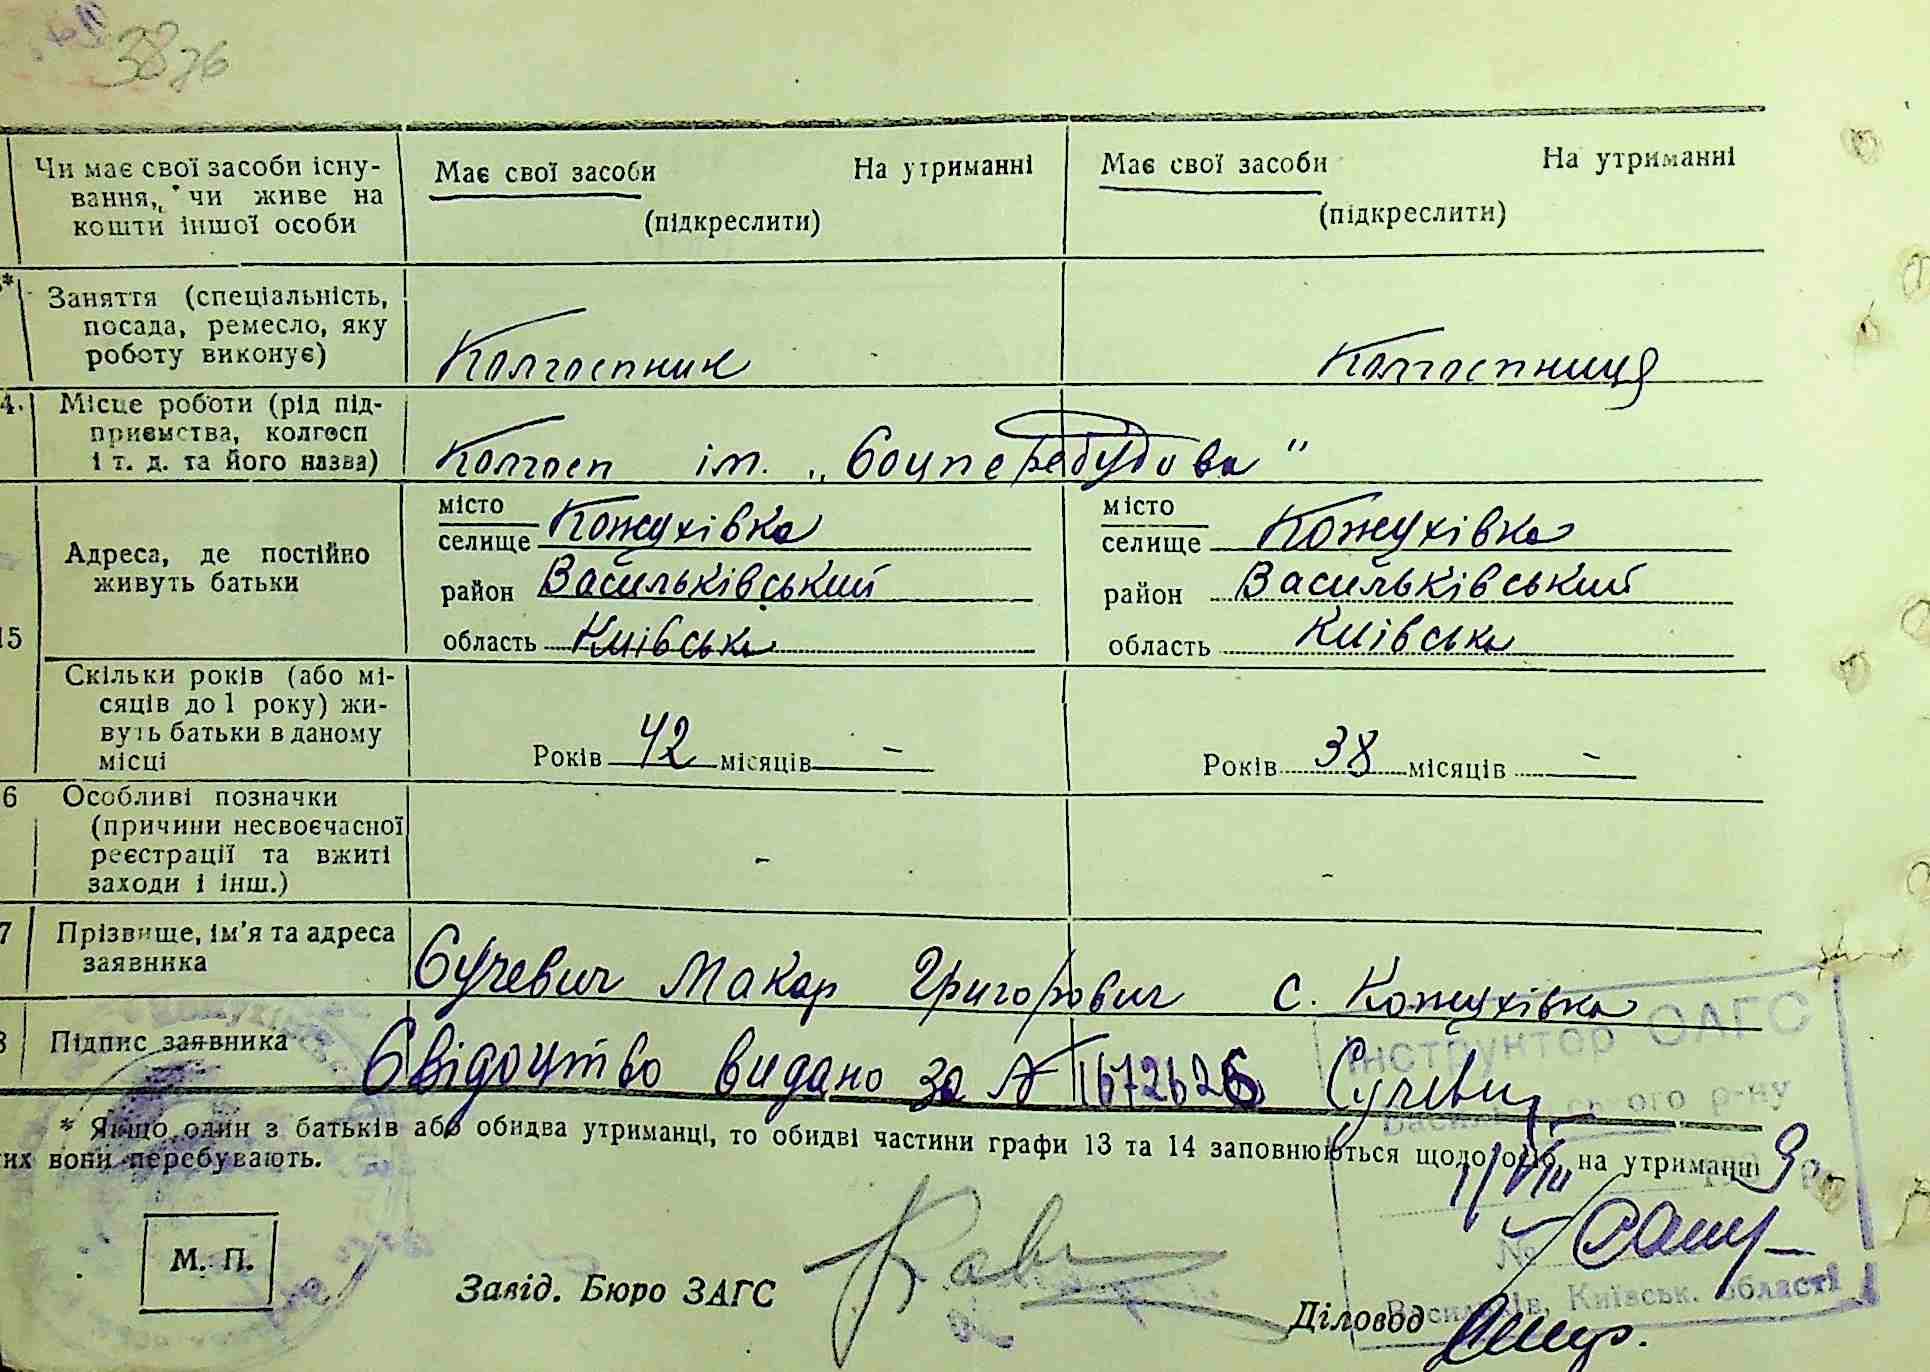 38 зв
Чи має свої засоби існу-
вання, чи живе на
кошти іншої особи
Має свої засоби На утриманні
(підкреслити)
Має свої засоби На утриманні
(підкреслити)
* Заняття (спеціальність,
посада, ремесло, яку
роботу виконує)
Колгоспник
Колгоспниця
4. Місце роботи (рід під-
приємства, колгосп
і т. д. та його назва)
Колгосп ім. „Соцперебудова"
15
Адреса, де постійно
живуть батьки
місто
селище Кожухівка
район Васильківський
область Київська
місто
селище Кожухівка
район Васильківський
область Київська
Скільки років (або мі-
сяців до 1 року) жи-
вуть батьки в даному
місці
Років 42 місяців –
Років 38 місяців –
6 Особливі позначки
(причини несвоєчасної
реєстрації та вжиті
заходи і інш.)
–
–
7 Прізвище, ім'я та адреса
заявника
Сучевич Макар Григорович с. Кожухівка
8 Підпис заявника
Свідоцтво видано за № 1672626 Сучевич
* Якщо один з батьків або обидва утриманці, то обидві частини графи 13 та 14 заповнюються щодо осіб, на утриманні
яких вони перебувають.
Інструктор ОАГС
Васильківського р-ну
№
Васильків, Київськ. області
М. П.
Завід. Бюро ЗАГС
Діловод